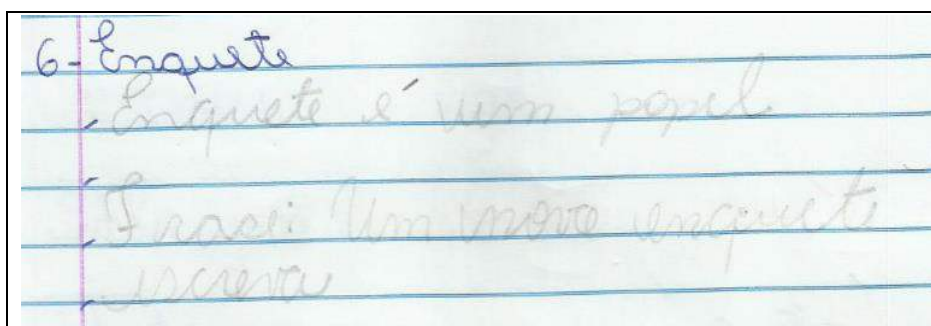 6- Enquete
Enquete é um papel
Frase: Um novo enquete
escreva